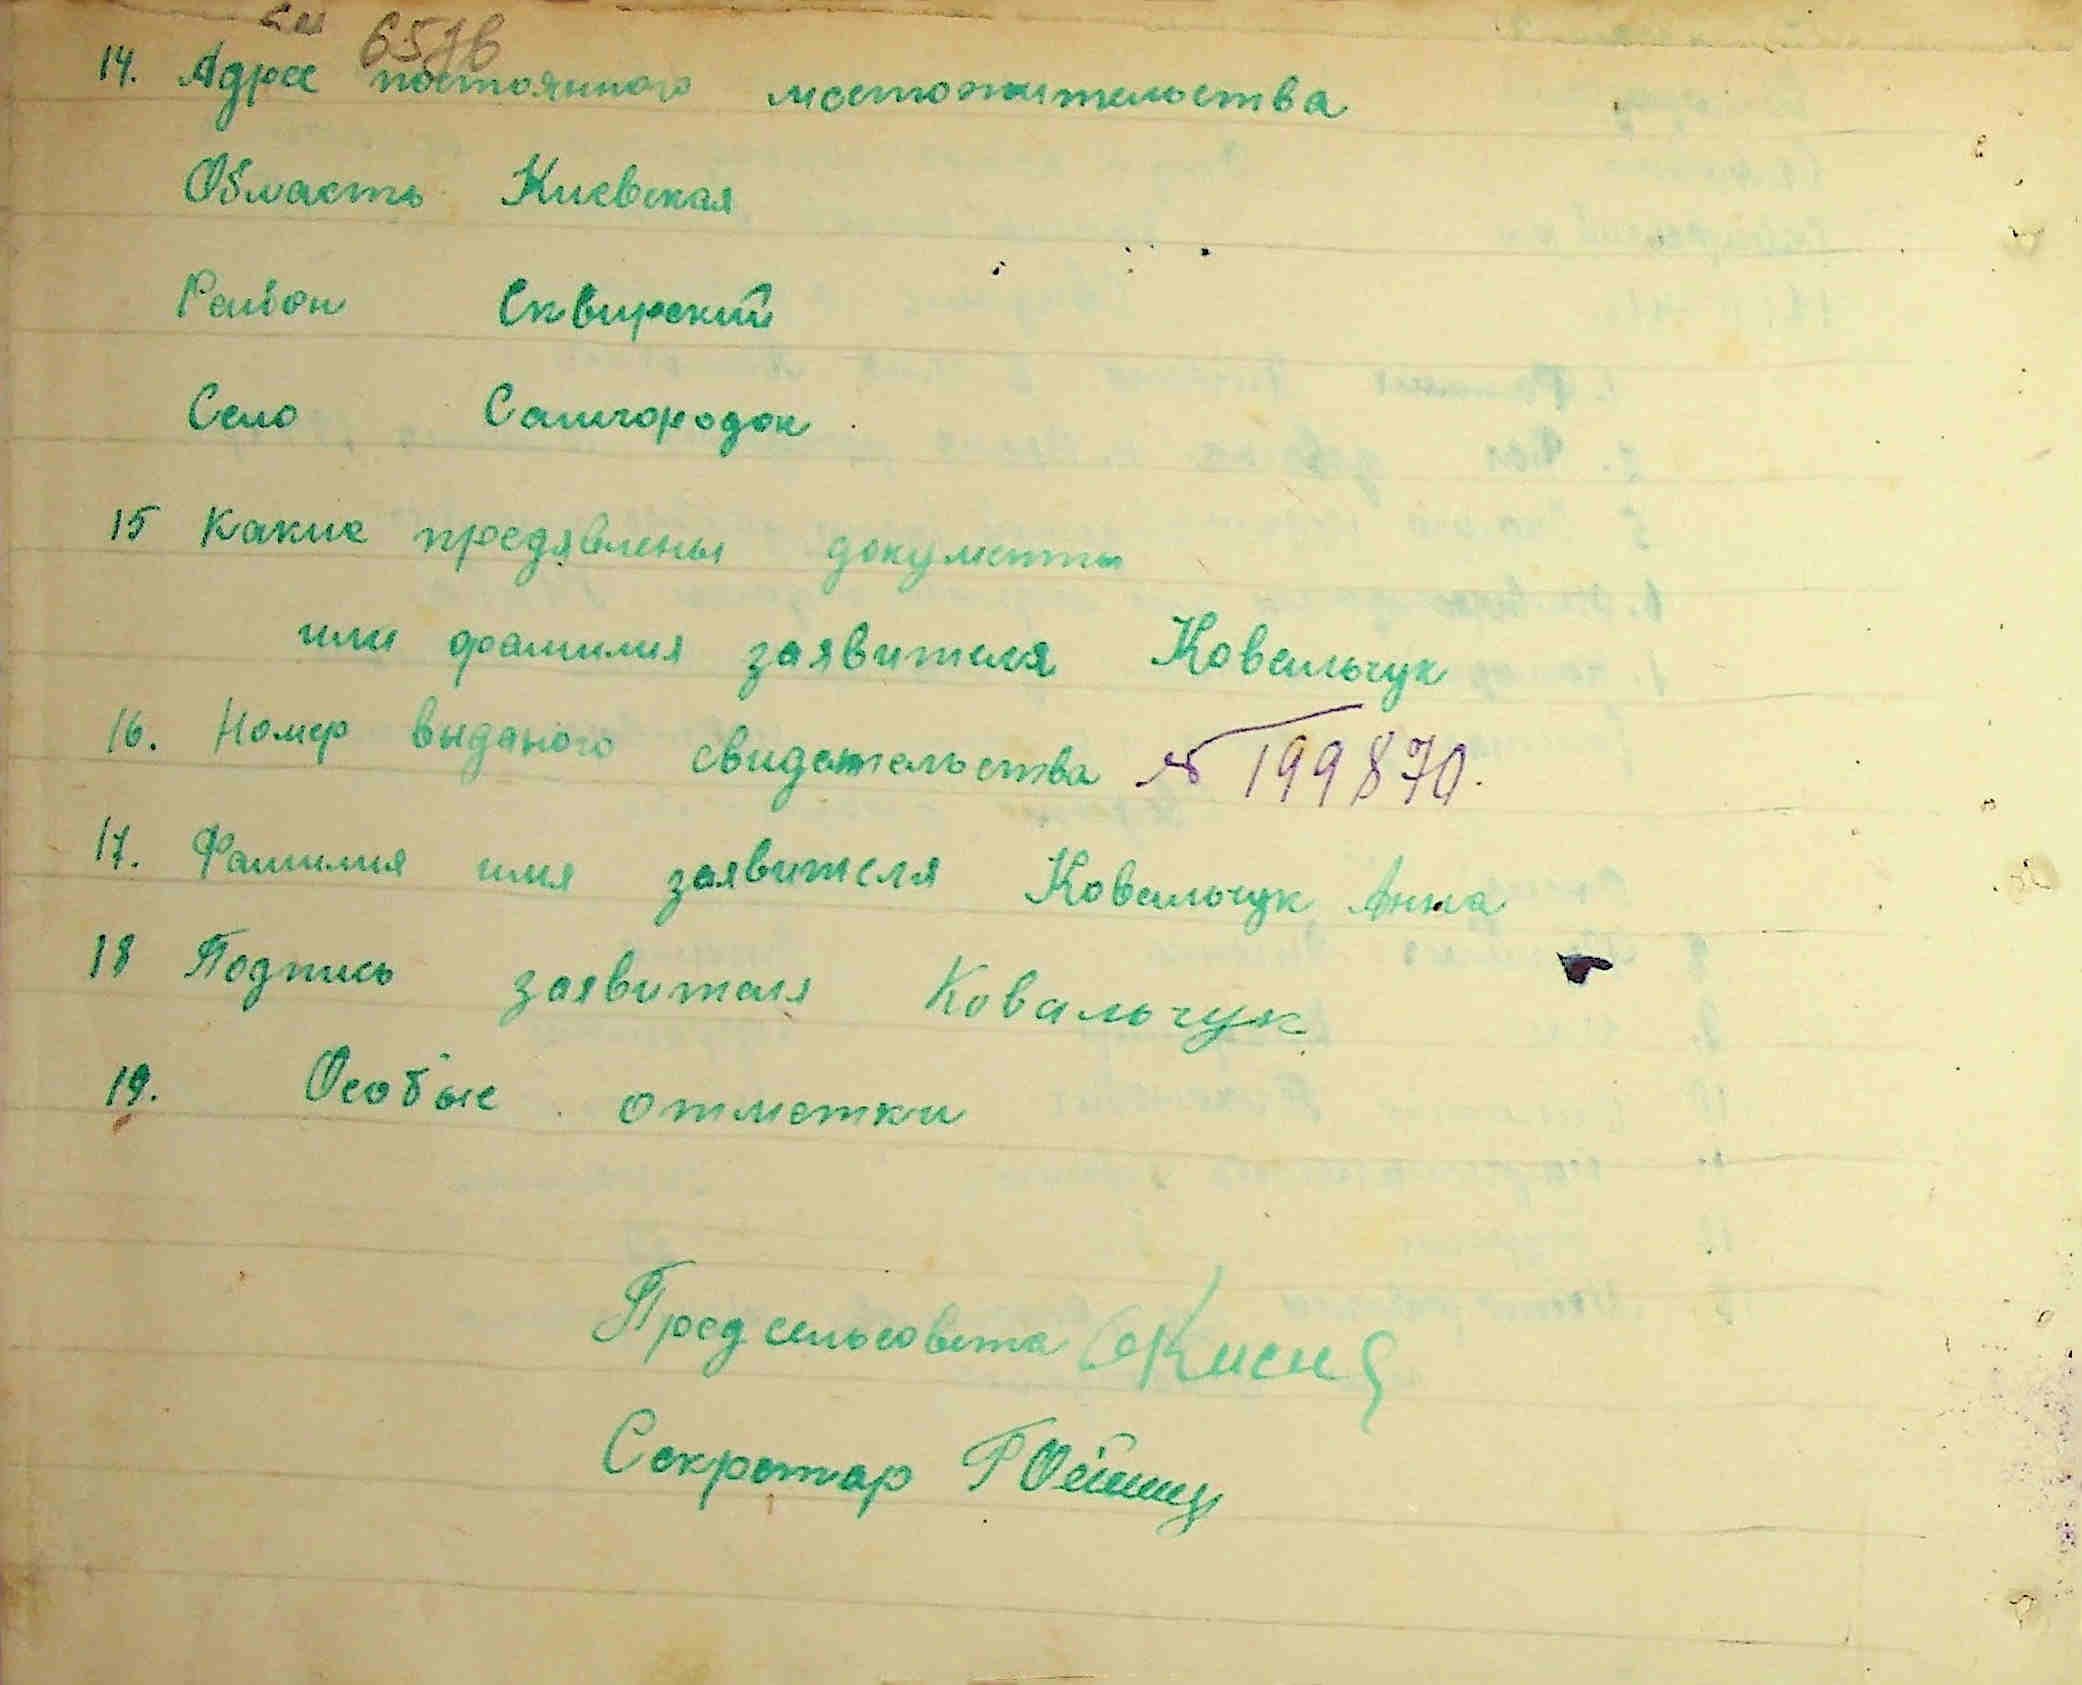 657в
14. Адрес постоянного местожительства
Область Киевская
Район Сквирский
Село Самгородок
15 Какие предявлены документы
или фамилия заявителя Ковальчук
16. Номер выданого свидетельства № 199870.
17. Фамилия имя заявителя Ковальчук Анна
18 Подпись заявителя Ковальчук
19. Особые отметки
Предсельсовета
Секретар